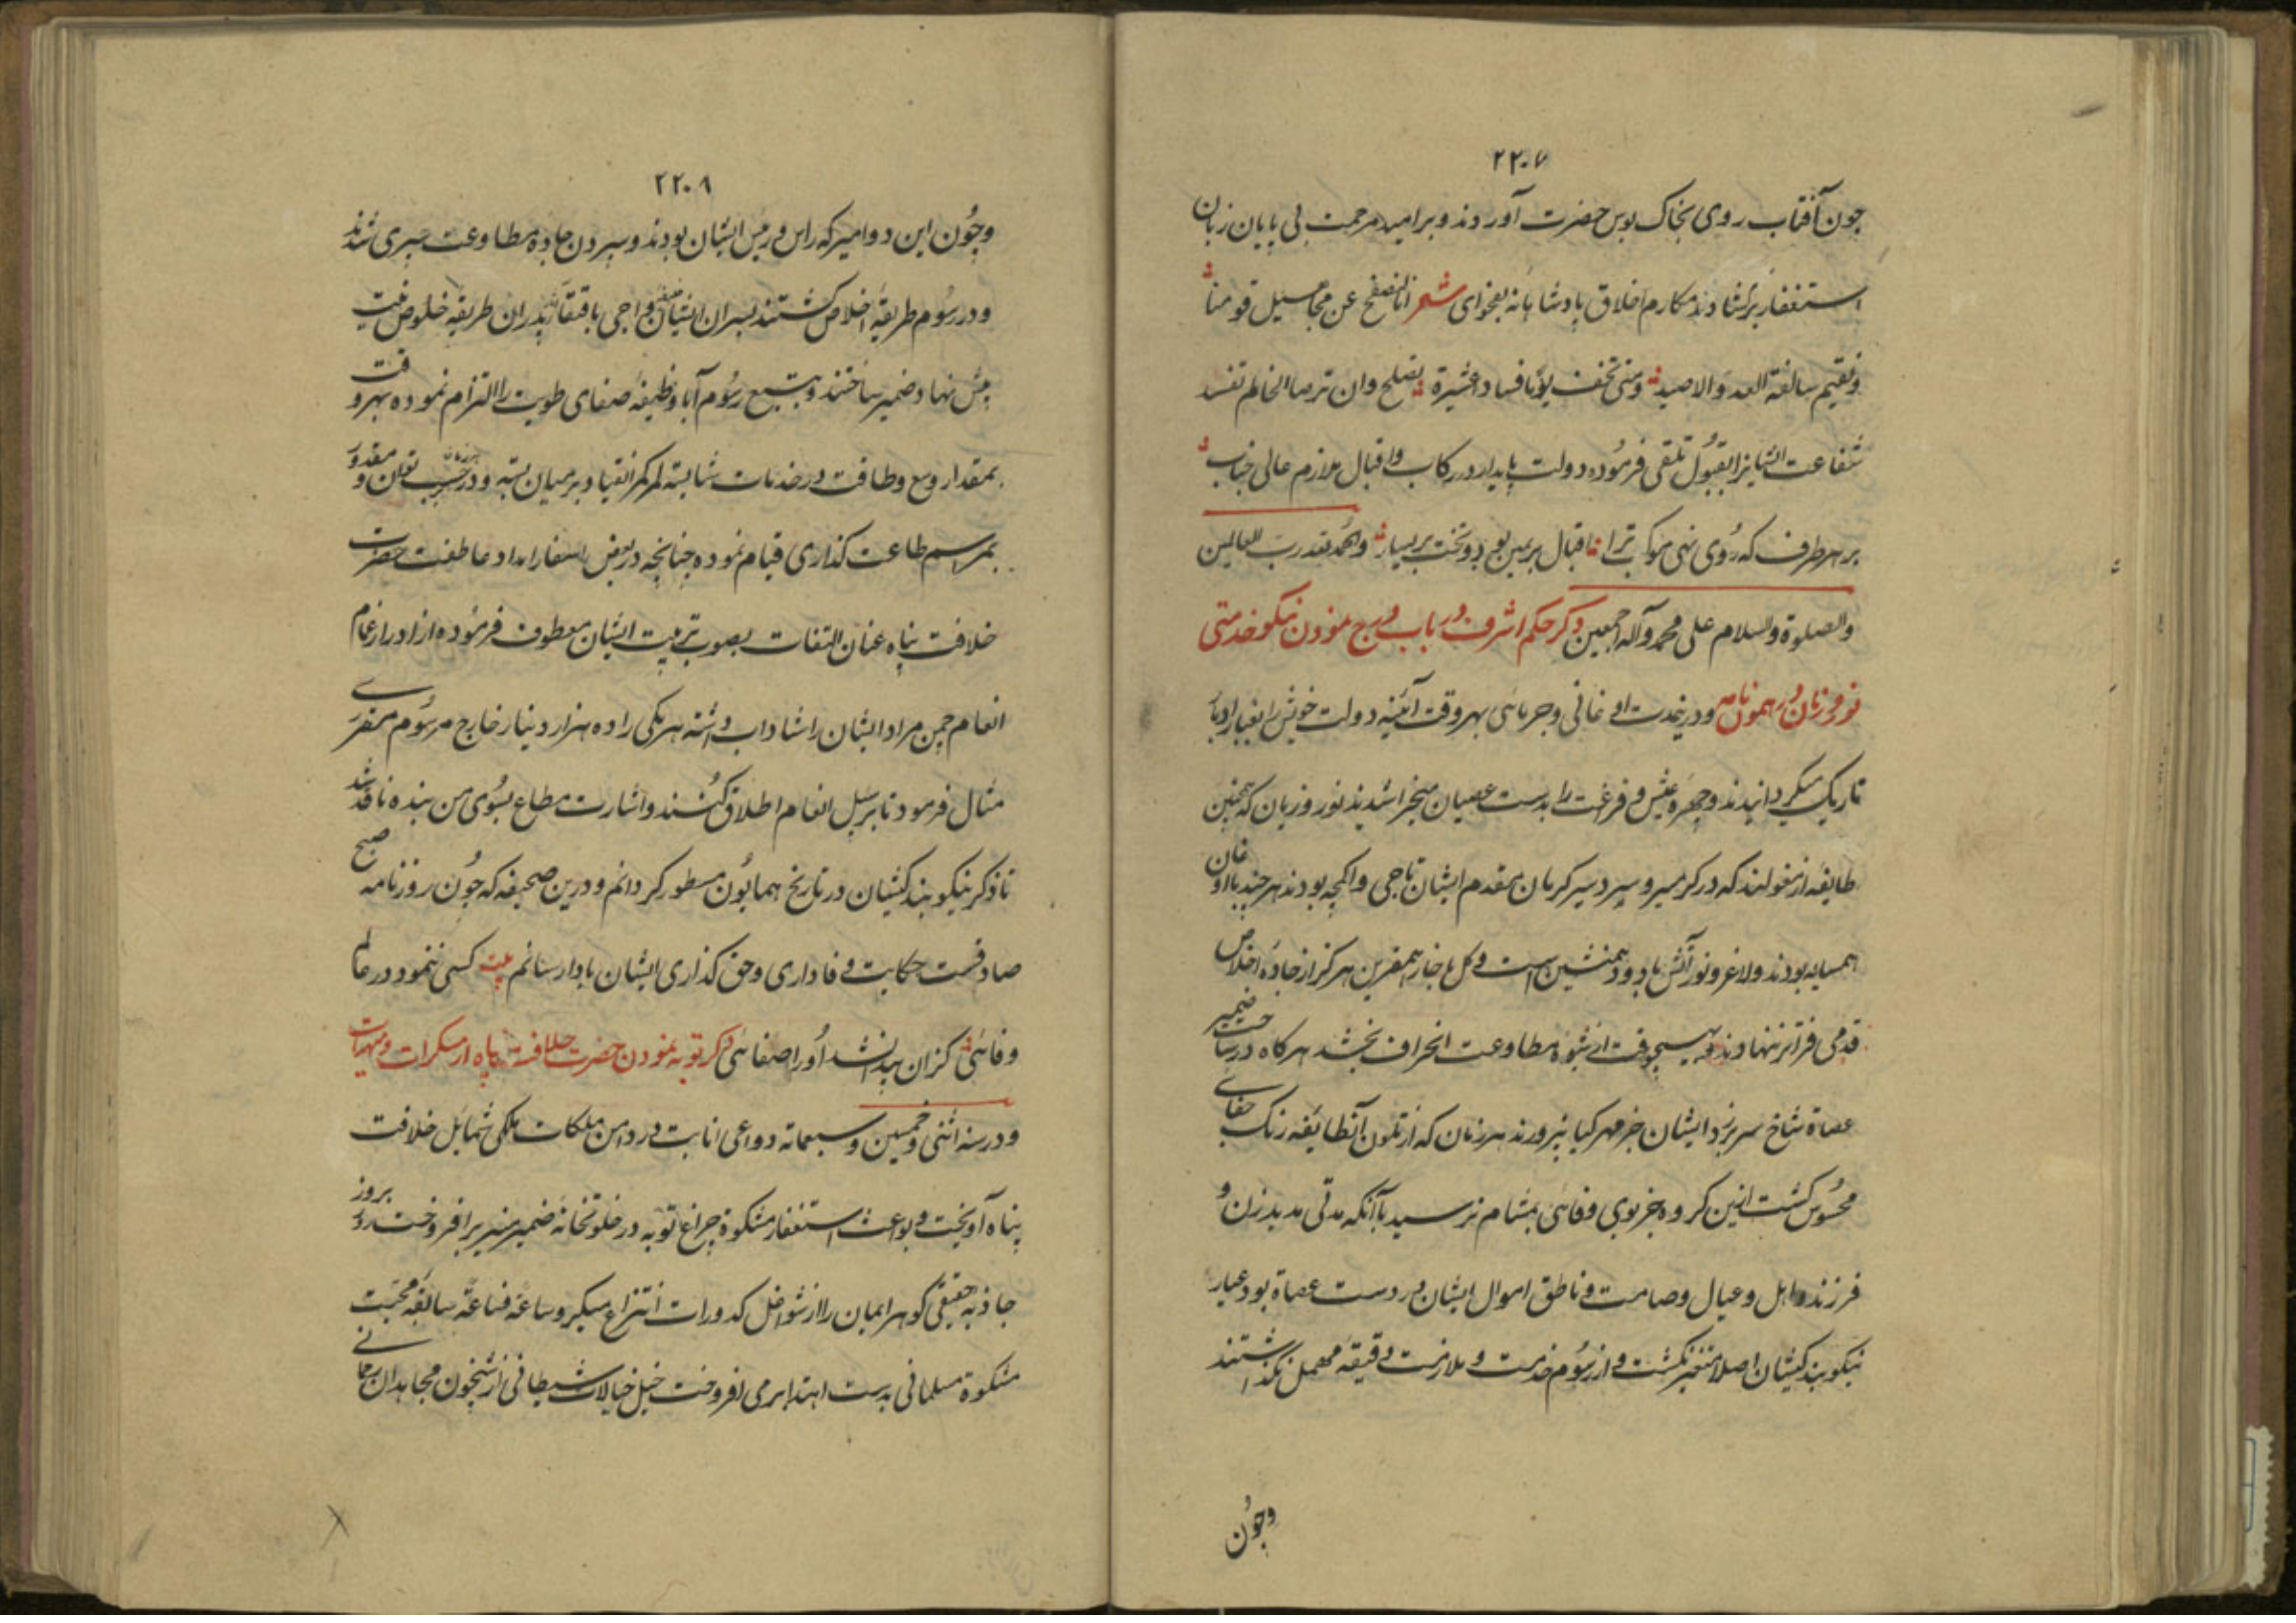 ۲۲۰۷
چون آفتاب روی بخاک بوس حضرت آوردند و بر امید مرحمت بی پایان زبان
استغفار برگشادند مکارم اخلاق پادشاهانه بفحوای شعر انا لنصفح عن مجاهیل قومنا
ونقیم سالفة العدو الاصید ومتی تخف یوما فساد عشیرة نصلح وان نر صالحا لم نفسد
شفاعت ایشانرا بقبول تلقی فرموده دولت پایدار در رکاب واقبال ملازم عالی جناب
بر هر طرف که روی نهی موکب ترا اقبال بر یمین بود و بخت بر یسار والحمد لله رب العالمین
والصلوة والسلام علی محمد وآله اجمعین ذکر حکم اشرف در باب درج نمودن نیکو خدمتی
نوروزیان در همیون نامه و در نخدت اوغانی و جرمائی بهر وقت آئینه دولت خویش را بغبار ادبار
تاریک میگردانیدند وچهره عیش و فراغت را بدست عصیان میخراشیدند نوروزیان که همچنین
طایفه از مغولند که در گرمسیر و سردسیر کرمان مقدم ایشان تاجی و اکمچه بودند هر چند با اوغان
همسایه بودند ولا غرو نور آتش با دود همنشین است و گل با خار همقرین هرگز از جاده اخلاص
قدمی فراتر ننهادند و بهیچوقت از شیوه مطاوعت انحراف نجستند هرگاه در ساحت ضمیر
عصاة شاخ سر بر زد ایشان جز مهر گیا نپرورند هر زمان که از تلون آنطایفه رنگ جفای
محسوس گشت ازین گروه جز بوی وفائی بمشام نرسید باآنکه مدتی مدید زن و
فرزند و اهل و عیال و صامت و ناطق اموال ایشان در دست عصاة بود عیار
نیکو بندگیشان اصلا متغیر نگشت و از رسوم خدمت و ملازمت دقیقه مهمل نگذاشتند
وچون
۲۲۰۸
وچون این دو امیر که راس و رئیس ایشان بودند و سپردن جاده مطاوعت سپری شدند
و در رسوم طریقه اخلاص گشتند پسران ایشان واجی باقتفا پدران طریقه خلوص نیت
پیش نهاد ضمیر ساختند و بتتبع رسوم آبا وظیفه صفای طویت را التزام نموده بهر وقت
بمقدار وسع و طاقت در خدمات شایسته کمر انقیاد بر میان بسته و در حسب توان و مقدور
بمراسم طاعت گذاری قیام نموده چنانچه در بعض اسفار امداد عاطفت حضرت
خلافت پناه عنان التفات بصوب تربیت ایشان معطوف فرموده از ادرار غمام
انعام چمن مراد ایشان را شاداب داشته هر یکی را ده هزار دینار خارج مرسوم مقرری
مثال فرمود تا بر سبیل انعام اطلاق کنند و اشارت مطاع بسوی من بنده نافذ شد
تا ذکر نیکو بندگیشان در تاریخ همایون مسطور گردانم و درین صحیفه که چون روزنامه صبح
صادقست حکایت وفاداری و حق گذاری ایشان بادا رسانم بیت کسی ننمود در عالم
وفائی کزان پیدا نشد او را صفائی ذکر توبه نمودن حضرت خلافت پناه از مسکرات و منهیات
و در سنه اثنی و خمسین و سبعمائه دواعی انابت در دامن ملکات ملکی شمایل خلافت
پناه آویخت و بواعث استغفار مشکوة چراغ توبه در خلوتخانه ضمیر منیر بر افروخت روز بروز
جاذبه حقیقی گوهر ایمان را از شواغل کدورات انتزاع میکرد و ساعة فساعة سابقه محبت
مشکوة مسلمانی بدست اهتدا بر می افروخت خیل خیالات شیطانی از شبخون مجاهدان رحمانی